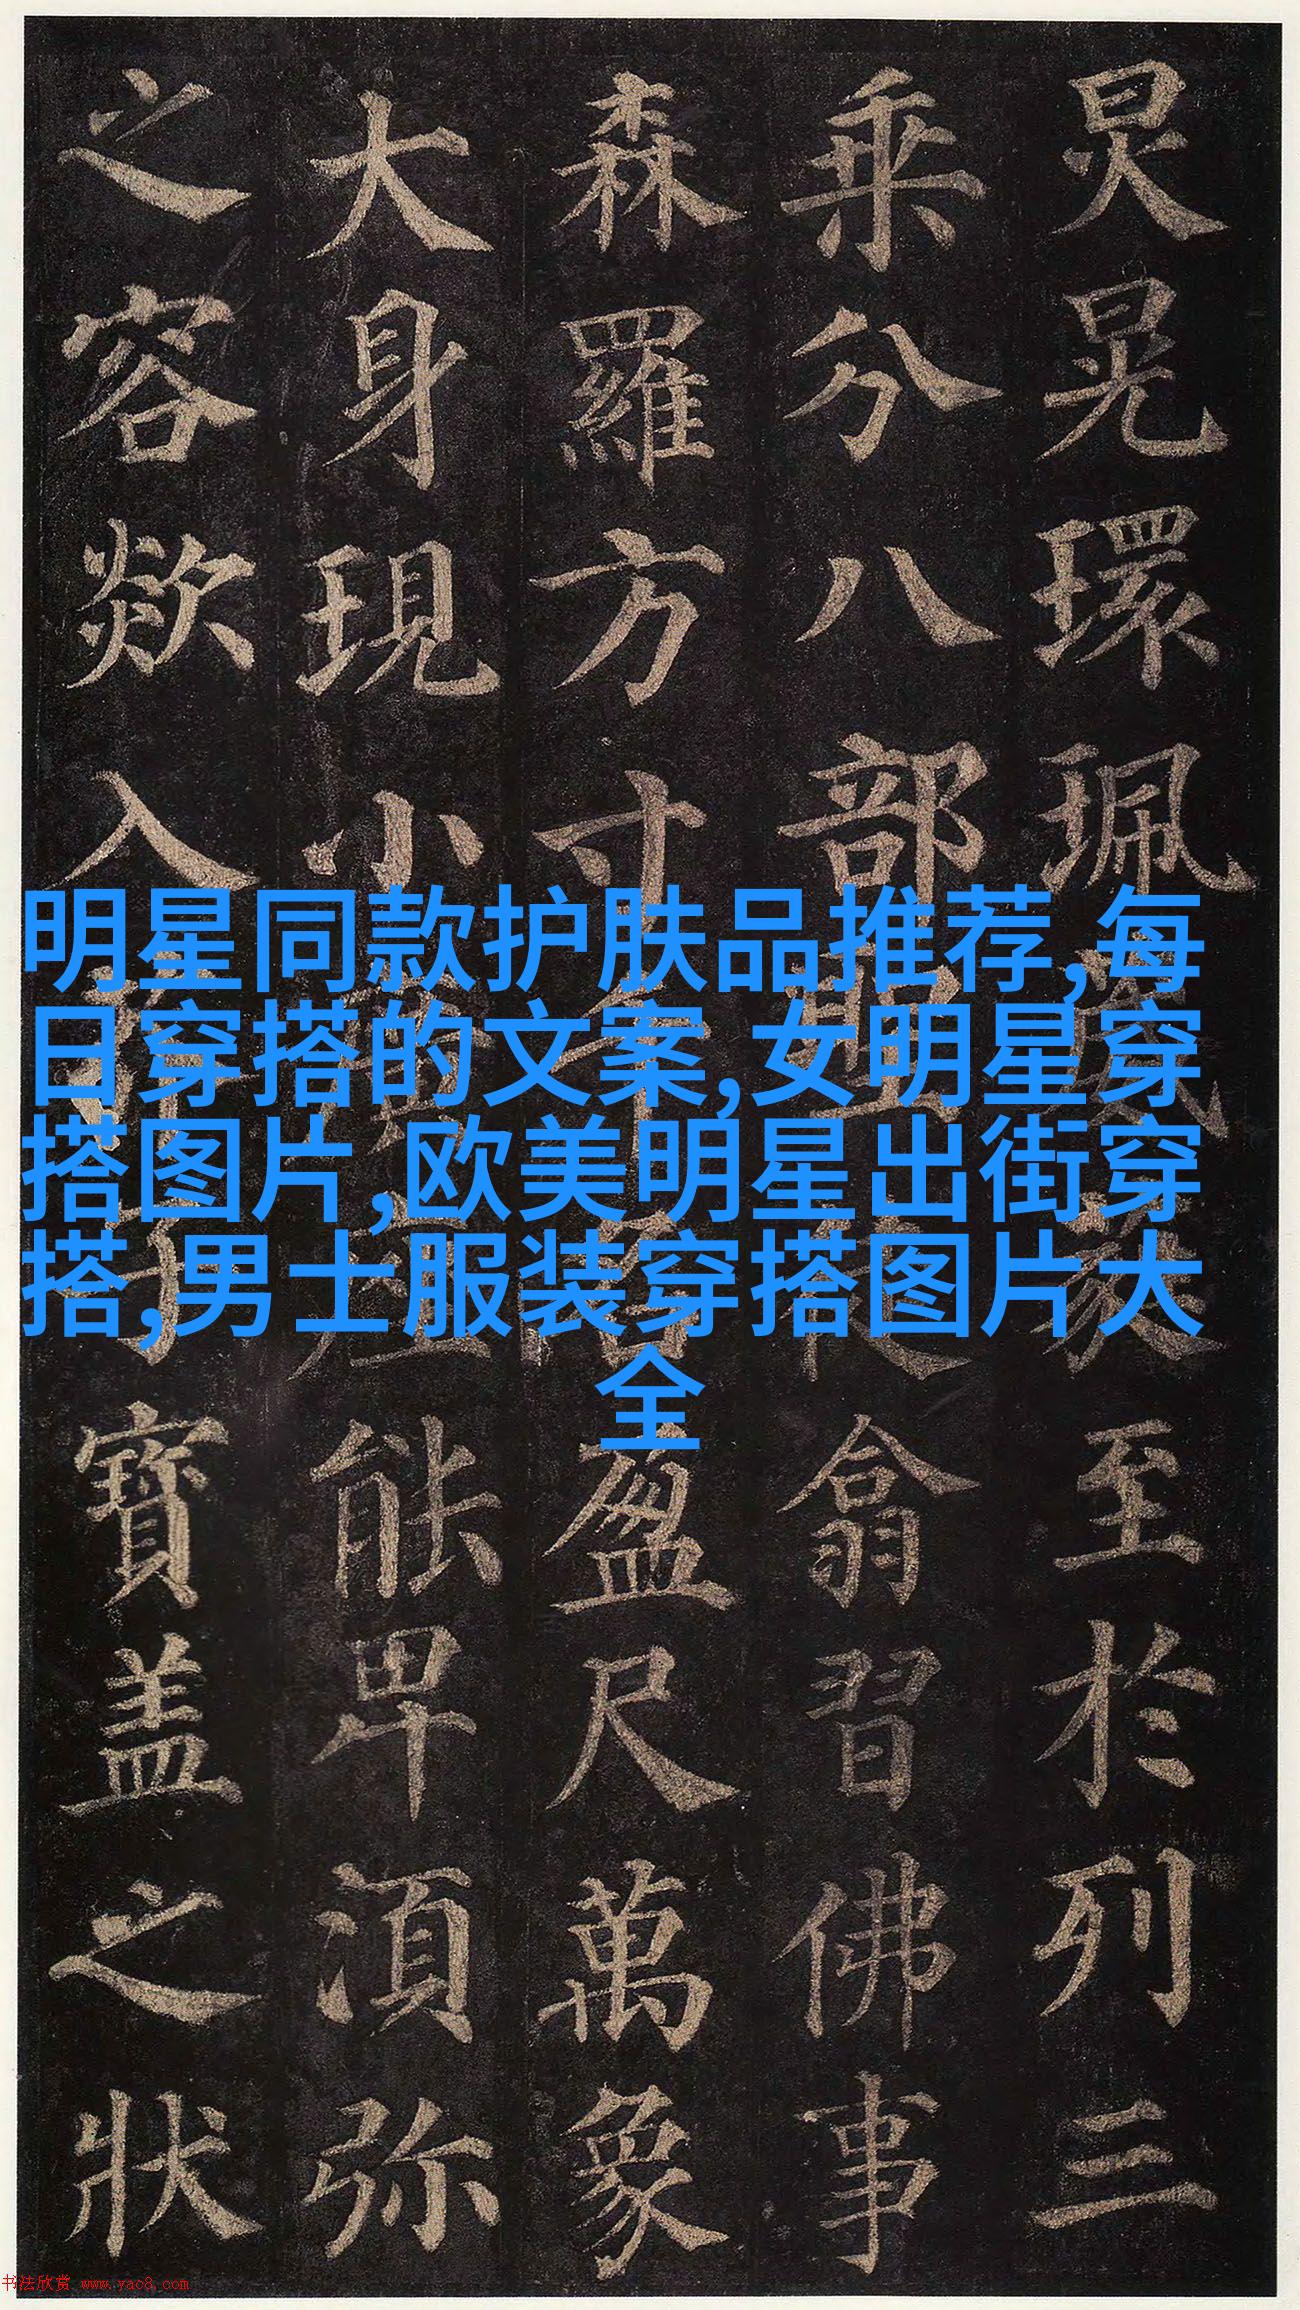 炅晃環珮葳蕤至於列三
乘分八部聖徒翕習佛事
森羅方寸千名盈尺萬象
大身現小廣座能卑湏弥
之容欻入芥子寶盖之狀
明星同款护肤品推荐,每
日穿搭的文案,女明星穿
搭图片,欧美明星出街穿
搭,男士服装穿搭图片大
全
书法欣赏 www.yac8.com